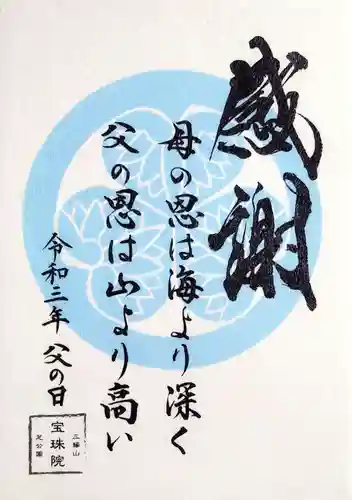 感謝
母の恩は海より深く
父の恩は山より高い
令和三年 父の日
三縁山
宝珠院
芝公園